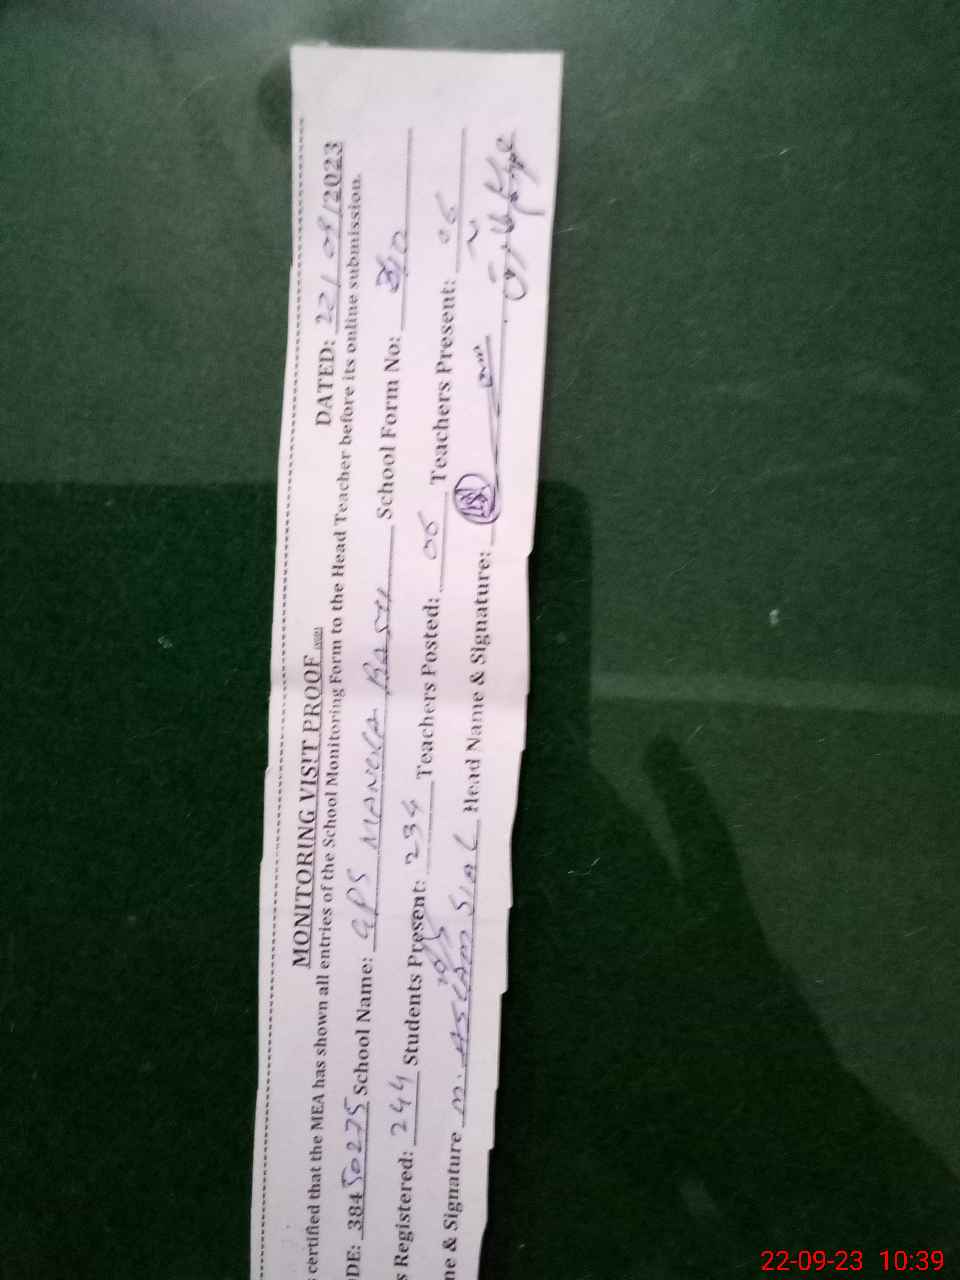 MONITORING VISIT PROOF
DATED: 22/09/2023
certified that the MEA has shown all entries of the School Monitoring Form to the Head Teacher before its online submission.
DE: 38450275 School Name: GPS School Form No:
s Registered: 244 Students Present: 234 Teachers Posted: 06 Teachers Present: 06
me & Signature M. ASLAM SIAL Head Name & Signature:
22-09-23 10:39